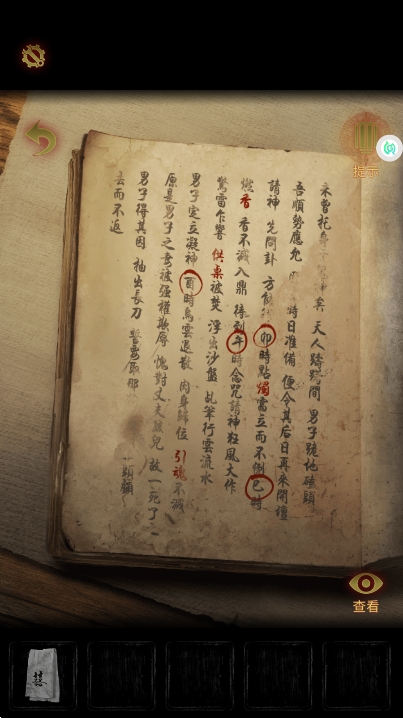 提示
未曾托身 矣 天人躊躇間 男子跪地磕頭
吾順勢應允 時日准備 便令其后日再來開壇
請神 先問卦 方 卯時點燭 當立而不倒 巳時
燃香 香不滅入鼎 待到午時念咒請神 狂風大作
驚雷乍響 供桌被焚 浮出沙盤 乩筆行雲流水
男子定立凝神 酉時烏雲退散 肉身歸位 引魂不滅
原是男子之妻被强權欺辱 愧對丈夫孩兒 故一死了之
男子得其因 抽出長刀 誓要取那 頭顱
去而不返
查看